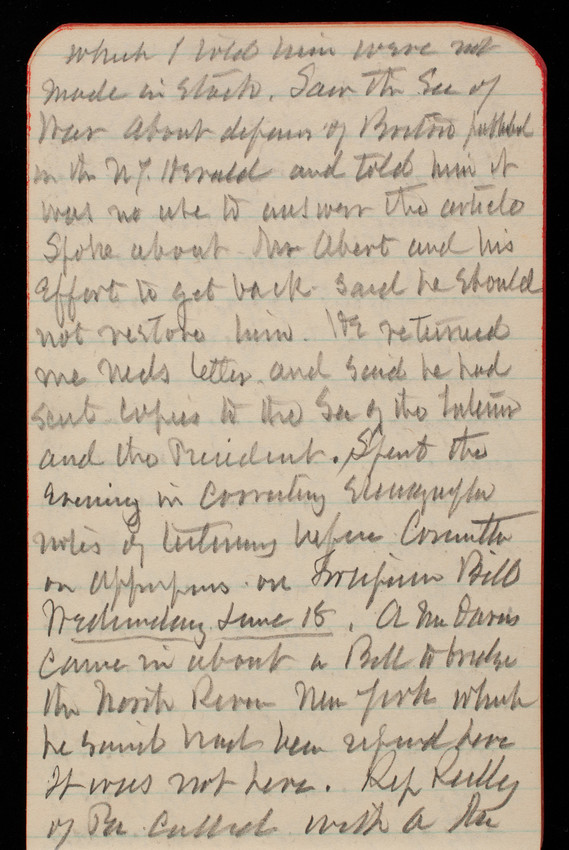 which I told him were not
made in stock. Saw the Sec of
War about defenses of Boston published
in the N.Y. Herald and told him it
was no use to answer the article
Spoke about Mr Abert and his
effort to get back. Said he should
not restore him. He returned
me Neds letter and said he had
sent copies to the Sec of the Interior
and the President. Spent the
evening in correcting stenographer
notes of testimony before Committee
on Appropns on Fortification Bill
Wednesday June 18. A Mr Davis
came in about a Bill to bridge
the North River New York which
he said had been referred here
It was not here. Rep Reilly
of Pa called with a Mr